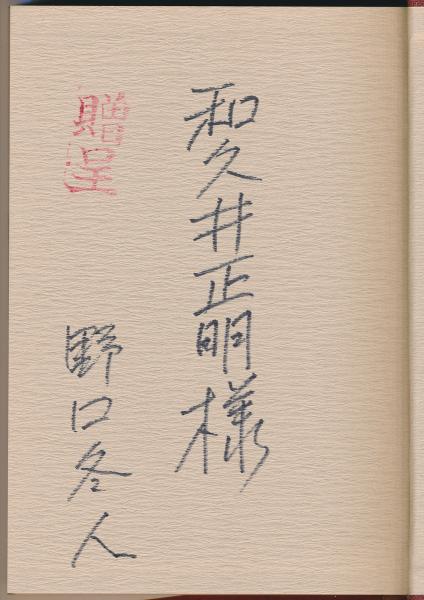 和久井正明様
贈呈
野口冬人